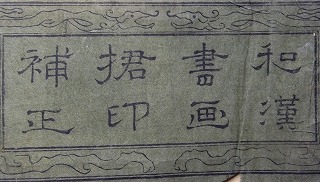 和漢
書画
捃印
補正